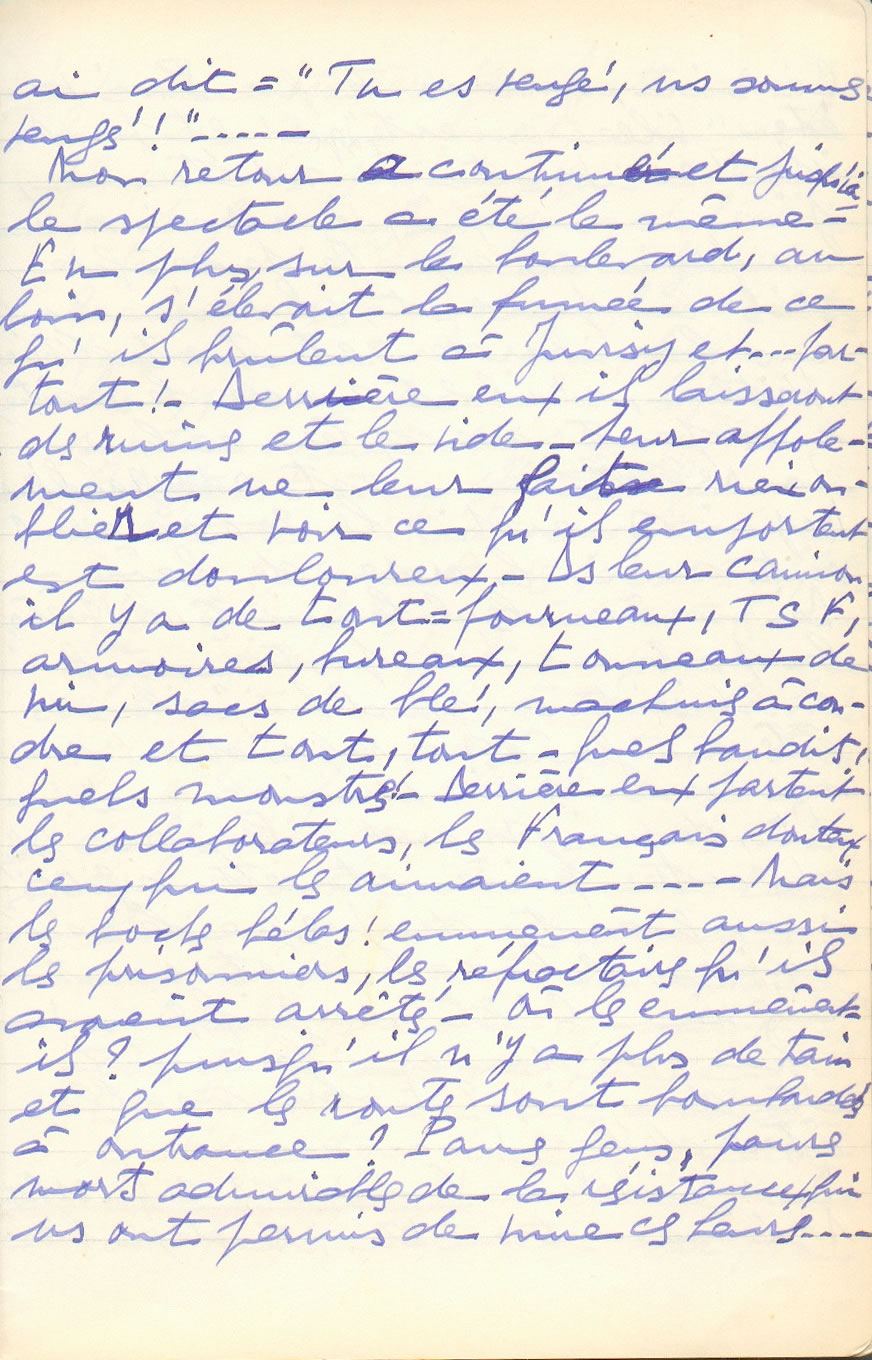 ai dit = " Tu es vengé, ns sommes
vengés ! " -----
Mon retour a continué et jusqu'ià
le spectacle a été le même =
En plus, sur le boulevard, au
loin, s'élevait la fumée de ce
qu'ils brûlent à Juvisy et --- par-
tout ! - Derrière eux ils laisseront
des ruines et le vide _ leur affole-
ment ne leur fait rien ou-
blier et voir ce qu'ils emportent
est douloureux - Ds leur camion
il y a de tout = fourneaux, TSF,
armoires, bureaux, tonneaux de
vin, sacs de blé, machines à cou-
dre et tout, tout - quels bandits,
quels monstres ! - Derrière eux partent
les collaborateurs, les Français douteux
ceux qui les aimaient ---- Mais
les boches hélas ! emmenènt aussi
les prisonniers, les réfractaires qu'ils
avaient arrêtés - Où les emmènent
ils ? puisqu'il n'y a plus de train
et que les routes sont bombardées
à outrance ? Pauvres gens, pauvres
morts admirables de la résistance qui
ns ont permis de vivre ces heures ----